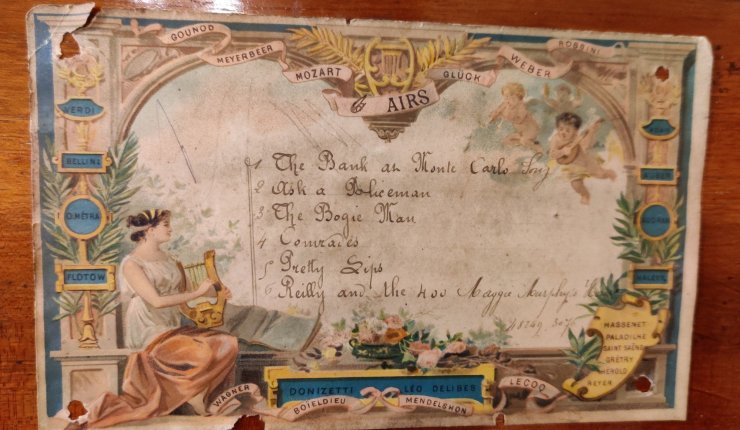 GOUNOD
MEYERBEER
MOZART
GLÜCK
WEBER
ROSSINI
6 AIRS
VERDI
BELLINI
O.MÉTRA
FLOTOW
ADAM
AUBER
AUDRAN
HALEVY
1 The Bank at Monte Carlo Song
2 Ask a Policeman
3 The Bogie Man
4 Comrades
5 Pretty Lips
6 Reilly and the 400 Maggie Murphy's
MASSENET
PALADILHE
SAINT SAËNS
GRÉTRY
HEROLD
REYER
WAGNER
DONIZETTI
LÉO DELIBES
LECOQ
BOÏELDIEU
MENDELSHON